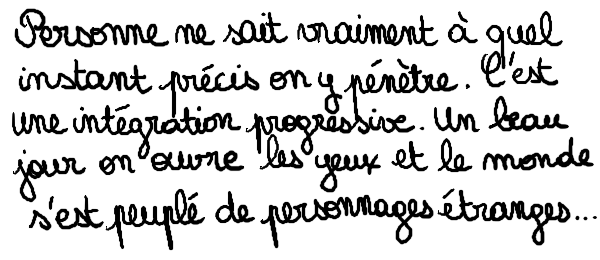 Personne ne sait vraiment à quel
instant précis on y pénètre. C'est
une intégration progressive. Un beau
jour on ouvre les yeux et le monde
s'est peuplé de personnages étranges...